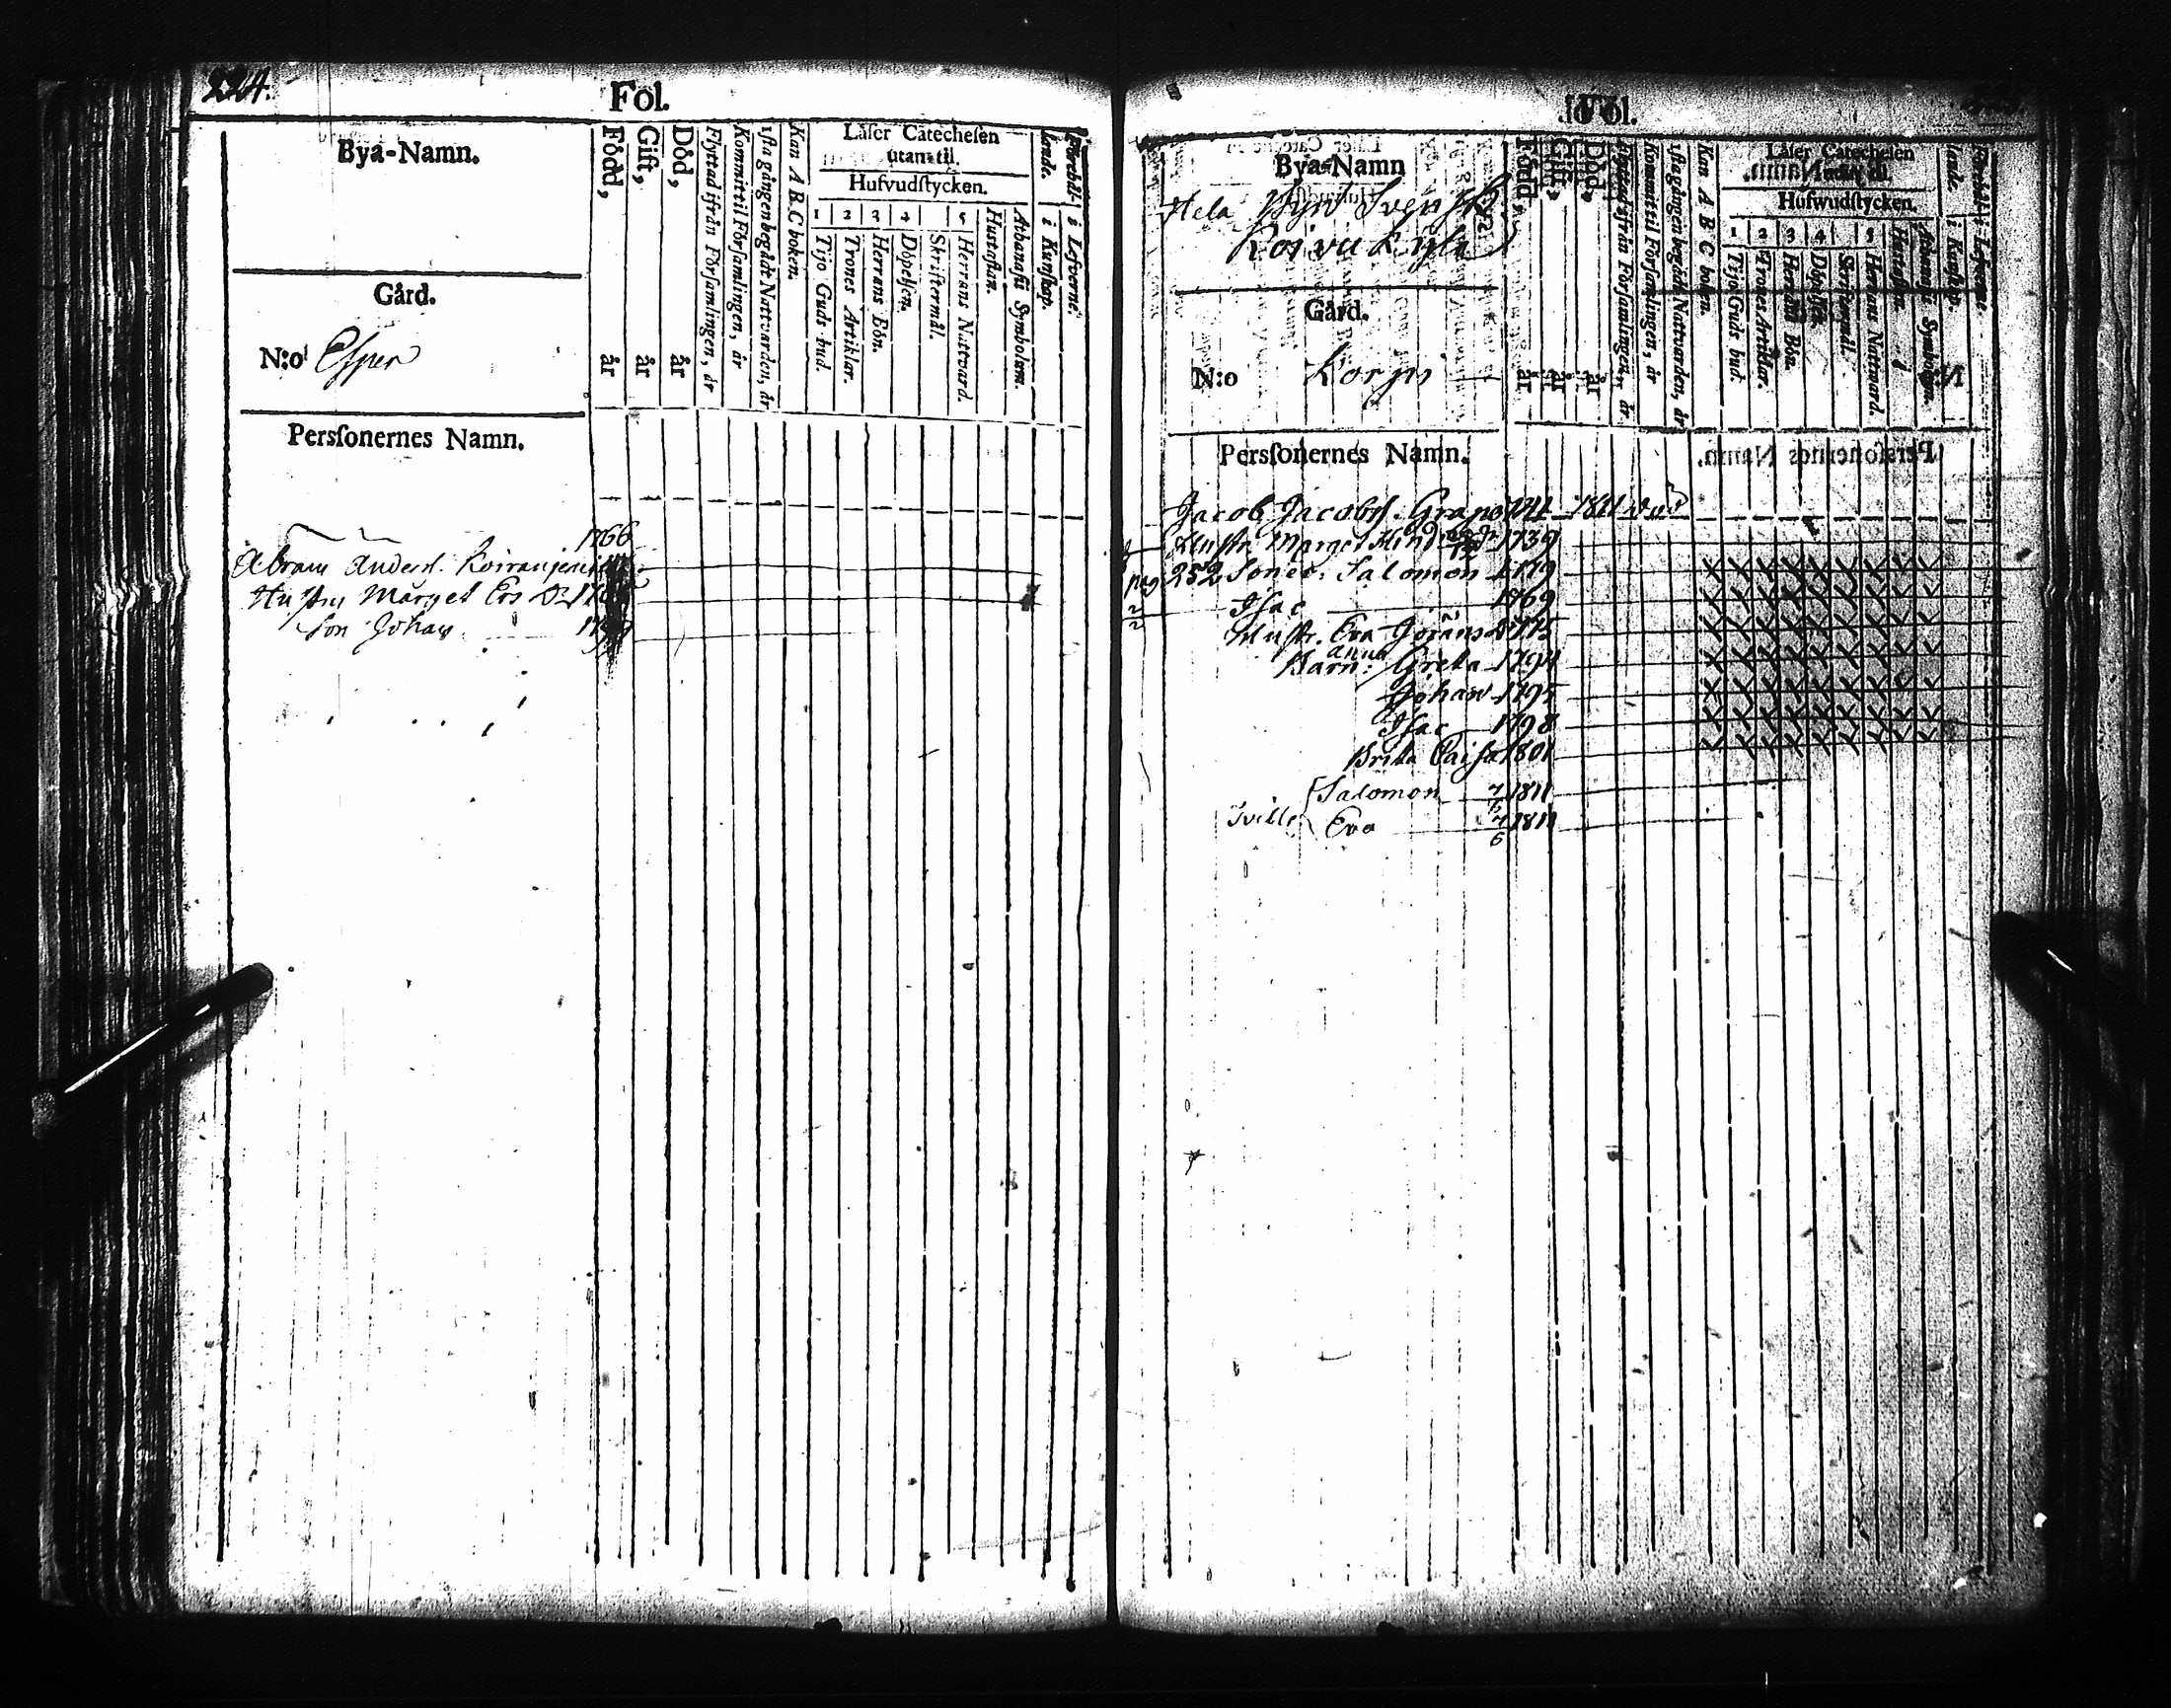 224.
Fol.
Bya-Namn.
Gård.
N:o Esper
Persſonernes Namn.
Född, år
Gift, år
Död, år
Flyttad ifrån Förſamlingen, år
Kommit til Förſamlingen, år
1ſta gången begådt Nattvarden, år
Kan A B C boken.
Låſer Catecheſen
utan-til.
Hufvudſtycken.
1 2 3 4 5
Tijo Guds bud.
Trones Artiklar.
Herrans Bön.
Döpelſen.
Skriftermål.
Herrans Nattvard.
Huſtaflan.
Athanaſii Symbolum.
Förehål-
lande.
i Kunſkap.
i Lefverne.
1766
Abram Anders.
Huſtru Marget Ers D:r
Son Johan
Fol.
Bya-Namn
Hela Byn
Gård.
N:o Korpi
Persſonernes Namn.
Född, år
Gift, år
Död, år
Flyttad ifrån Förſamlingen, år
Kommit til Förſamlingen, år
1ſta gången begådt Nattvarden, år
Kan A B C boken.
Låſer Catecheſen
Hufwudſtycken.
1 2 3 4 5
Tijo Guds bud.
Trones Artiklar.
Herrans Bön.
Skriftermål.
Herrans Nattward.
Jacob Jacobsſ. Grape 1811 död
Huſtr. Marget 1739
pag 252 Soner: Salomon 1779
Iſac 1769
Huſtr. Eva Görans D 1775
Barn: Anna Greta 1794
Johan 1795
Iſac 1798
Brita Caiſa 1801
Salomon 7/6 1811
Tvill. Eva 7/6 1811